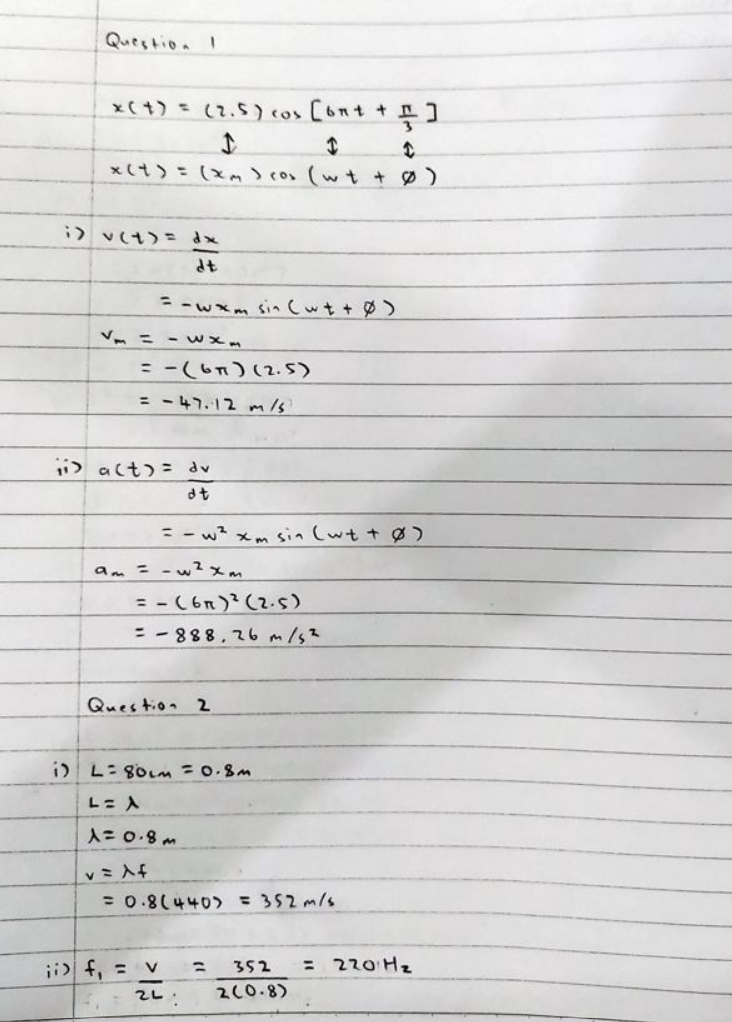 Question 1
x(t) = (2.5) cos [6πt + π/3]
↕ ↕ ↕
x(t) = (xm) cos (wt + Ø)
i) v(t) = dx/dt
= -wxm sin (wt + Ø)
vm = - wxm
= -(6π)(2.5)
= -47.12 m/s
ii) a(t) = dv/dt
= -w² xm sin (wt + Ø)
am = -w² xm
= -(6π)² (2.5)
= -888.26 m/s²
Question 2
i) L = 80cm = 0.8m
L = λ
λ = 0.8 m
v = λf
= 0.8(440) = 352 m/s
ii) f₁ = v/2L = 352/2(0.8) = 220 Hz